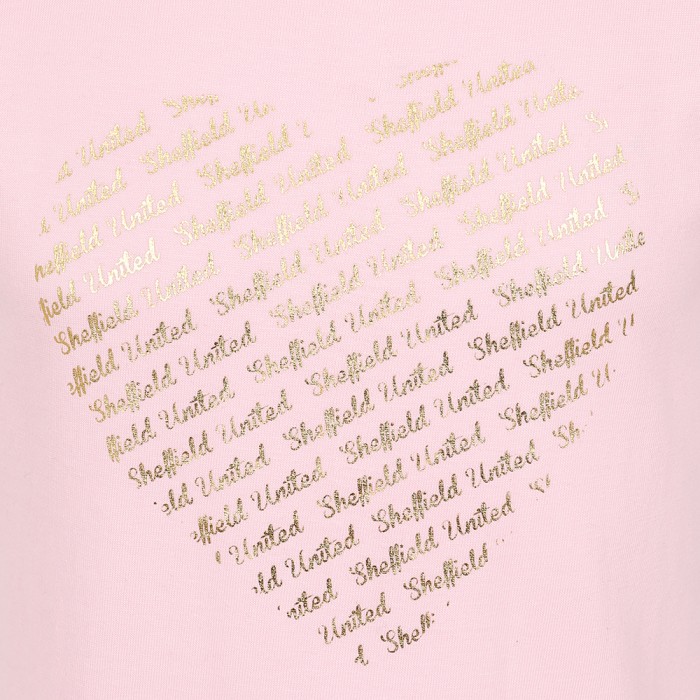 United Sheff
United Sheffield Un
heffield United Sheffield
field United Sheffield United Sheffield United
Sheffield United Sheffield United Sheffield United
effield United Sheffield United Sheffield United S
Sheffield United Sheffield United Sheffield United
ffield United Sheffield United Sheffield United S
Sheffield United Sheffield United Sheffield Unite
eld United Sheffield United Sheffield United
effield United Sheffield United Sheffield U
United Sheffield United Sheffield U
ld United Sheffield United Sh
nited Sheffield United S
United Sheffield
d Sheff